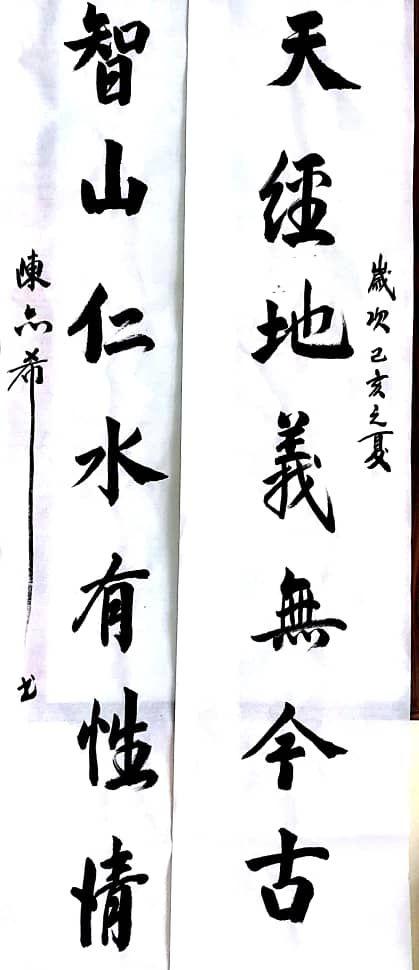 歲次己亥之夏
天經地義無今古
智山仁水有性情
陳亦希書